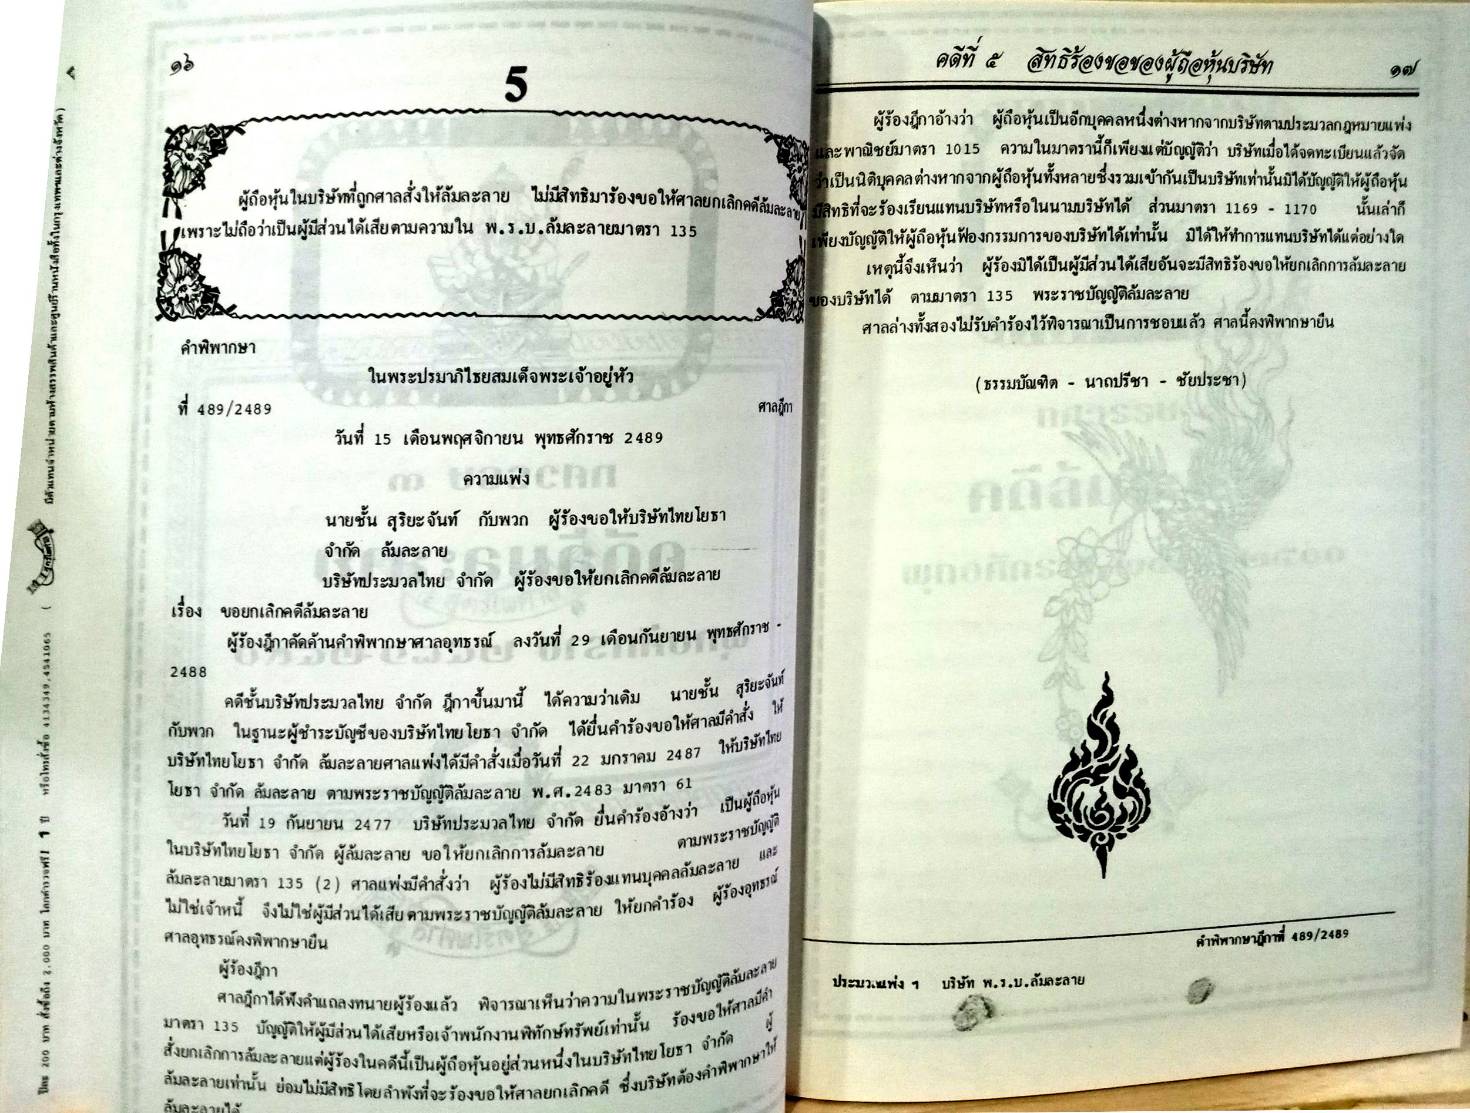 ๑๖
5
ผู้ถือหุ้นในบริษัทที่ถูกศาลสั่งให้ล้มละลาย ไม่มีสิทธิมาร้องขอให้ศาลยกเลิกคดีล้มละลาย
เพราะไม่ถือว่าเป็นผู้มีส่วนได้เสียตามความใน พ.ร.บ.ล้มละลายมาตรา 135
คำพิพากษา
ในพระปรมาภิไธยสมเด็จพระเจ้าอยู่หัว
ที่ 489/2489 ศาลฎีกา
วันที่ 15 เดือนพฤศจิกายน พุทธศักราช 2489
ความแพ่ง
นายชั้น สุริยะจันท์ กับพวก ผู้ร้องขอให้บริษัทไทยโยธา
จำกัด ล้มละลาย
บริษัทประมวลไทย จำกัด ผู้ร้องขอให้ยกเลิกคดีล้มละลาย
เรื่อง ขอยกเลิกคดีล้มละลาย
ผู้ร้องฎีกาคัดค้านคำพิพากษาศาลอุทธรณ์ ลงวันที่ 29 เดือนกันยายน พุทธศักราช -
2488
คดีชั้นบริษัทประมวลไทย จำกัด ฎีกาขึ้นมานี้ ได้ความว่าเดิม นายชั้น สุริยะจันท์
กับพวก ในฐานะผู้ชำระบัญชีของบริษัทไทยโยธา จำกัด ได้ยื่นคำร้องขอให้ศาลมีคำสั่ง ให้
บริษัทไทยโยธา จำกัด ล้มละลายศาลแพ่งได้มีคำสั่งเมื่อวันที่ 22 มกราคม 2487 ให้บริษัทไทย
โยธา จำกัด ล้มละลาย ตามพระราชบัญญัติล้มละลาย พ.ศ.2483 มาตรา 61
วันที่ 19 กันยายน 2477 บริษัทประมวลไทย จำกัด ยื่นคำร้องอ้างว่า เป็นผู้ถือหุ้น
ในบริษัทไทยโยธา จำกัด ผู้ล้มละลาย ขอให้ยกเลิกการล้มละลาย ตามพระราชบัญญัติ
ล้มละลายมาตรา 135 (2) ศาลแพ่งมีคำสั่งว่า ผู้ร้องไม่มีสิทธิร้องแทนบุคคลล้มละลาย และ
ไม่ใช่เจ้าหนี้ จึงไม่ใช่ผู้มีส่วนได้เสียตามพระราชบัญญัติล้มละลาย ให้ยกคำร้อง ผู้ร้องอุทธรณ์
ศาลอุทธรณ์คงพิพากษายืน
ผู้ร้องฎีกา
ศาลฎีกาได้ฟังคำแถลงทนายผู้ร้องแล้ว พิจารณาเห็นว่าความในพระราชบัญญัติล้มละลาย
มาตรา 135 บัญญัติให้ผู้มีส่วนได้เสียหรือเจ้าพนักงานพิทักษ์ทรัพย์เท่านั้น ร้องขอให้ศาลมีคำ
สั่งยกเลิกการล้มละลายแต่ผู้ร้องในคดีนี้เป็นผู้ถือหุ้นอยู่ส่วนหนึ่งในบริษัทไทยโยธา จำกัด ผู้
ล้มละลายเท่านั้น ย่อมไม่มีสิทธิโดยลำพังที่จะร้องขอให้ศาลยกเลิกคดี ซึ่งบริษัทต้องคำพิพากษาให้
ล้มละลายได้
คดีที่ ๕ สิทธิร้องขอของผู้ถือหุ้นบริษัท ๑๗
ผู้ร้องฎีกาอ้างว่า ผู้ถือหุ้นเป็นอีกบุคคลหนึ่งต่างหากจากบริษัทตามประมวลกฎหมายแพ่ง
และพาณิชย์มาตรา 1015 ความในมาตรานี้ก็เพียงแต่บัญญัติว่า บริษัทเมื่อได้จดทะเบียนแล้วจัด
ว่าเป็นนิติบุคคลต่างหากจากผู้ถือหุ้นทั้งหลายซึ่งรวมเข้ากันเป็นบริษัทเท่านั้นมิได้บัญญัติให้ผู้ถือหุ้น
มีสิทธิที่จะร้องเรียนแทนบริษัทหรือในนามบริษัทได้ ส่วนมาตรา 1169 - 1170 นั้นเล่าก็
เพียงบัญญัติให้ผู้ถือหุ้นฟ้องกรรมการของบริษัทได้เท่านั้น มิได้ให้ทำการแทนบริษัทได้แต่อย่างใด
เหตุนี้จึงเห็นว่า ผู้ร้องมิได้เป็นผู้มีส่วนได้เสียอันจะมีสิทธิร้องขอให้ยกเลิกการล้มละลาย
ของบริษัทได้ ตามมาตรา 135 พระราชบัญญัติล้มละลาย
ศาลล่างทั้งสองไม่รับคำร้องไว้พิจารณาเป็นการชอบแล้ว ศาลนี้คงพิพากษายืน
(ธรรมบัณฑิต - นาถปรีชา - ชัยประชา)
คำพิพากษาฎีกาที่ 489/2489
ประมวลแพ่ง ฯ บริษัท พ.ร.บ.ล้มละลาย